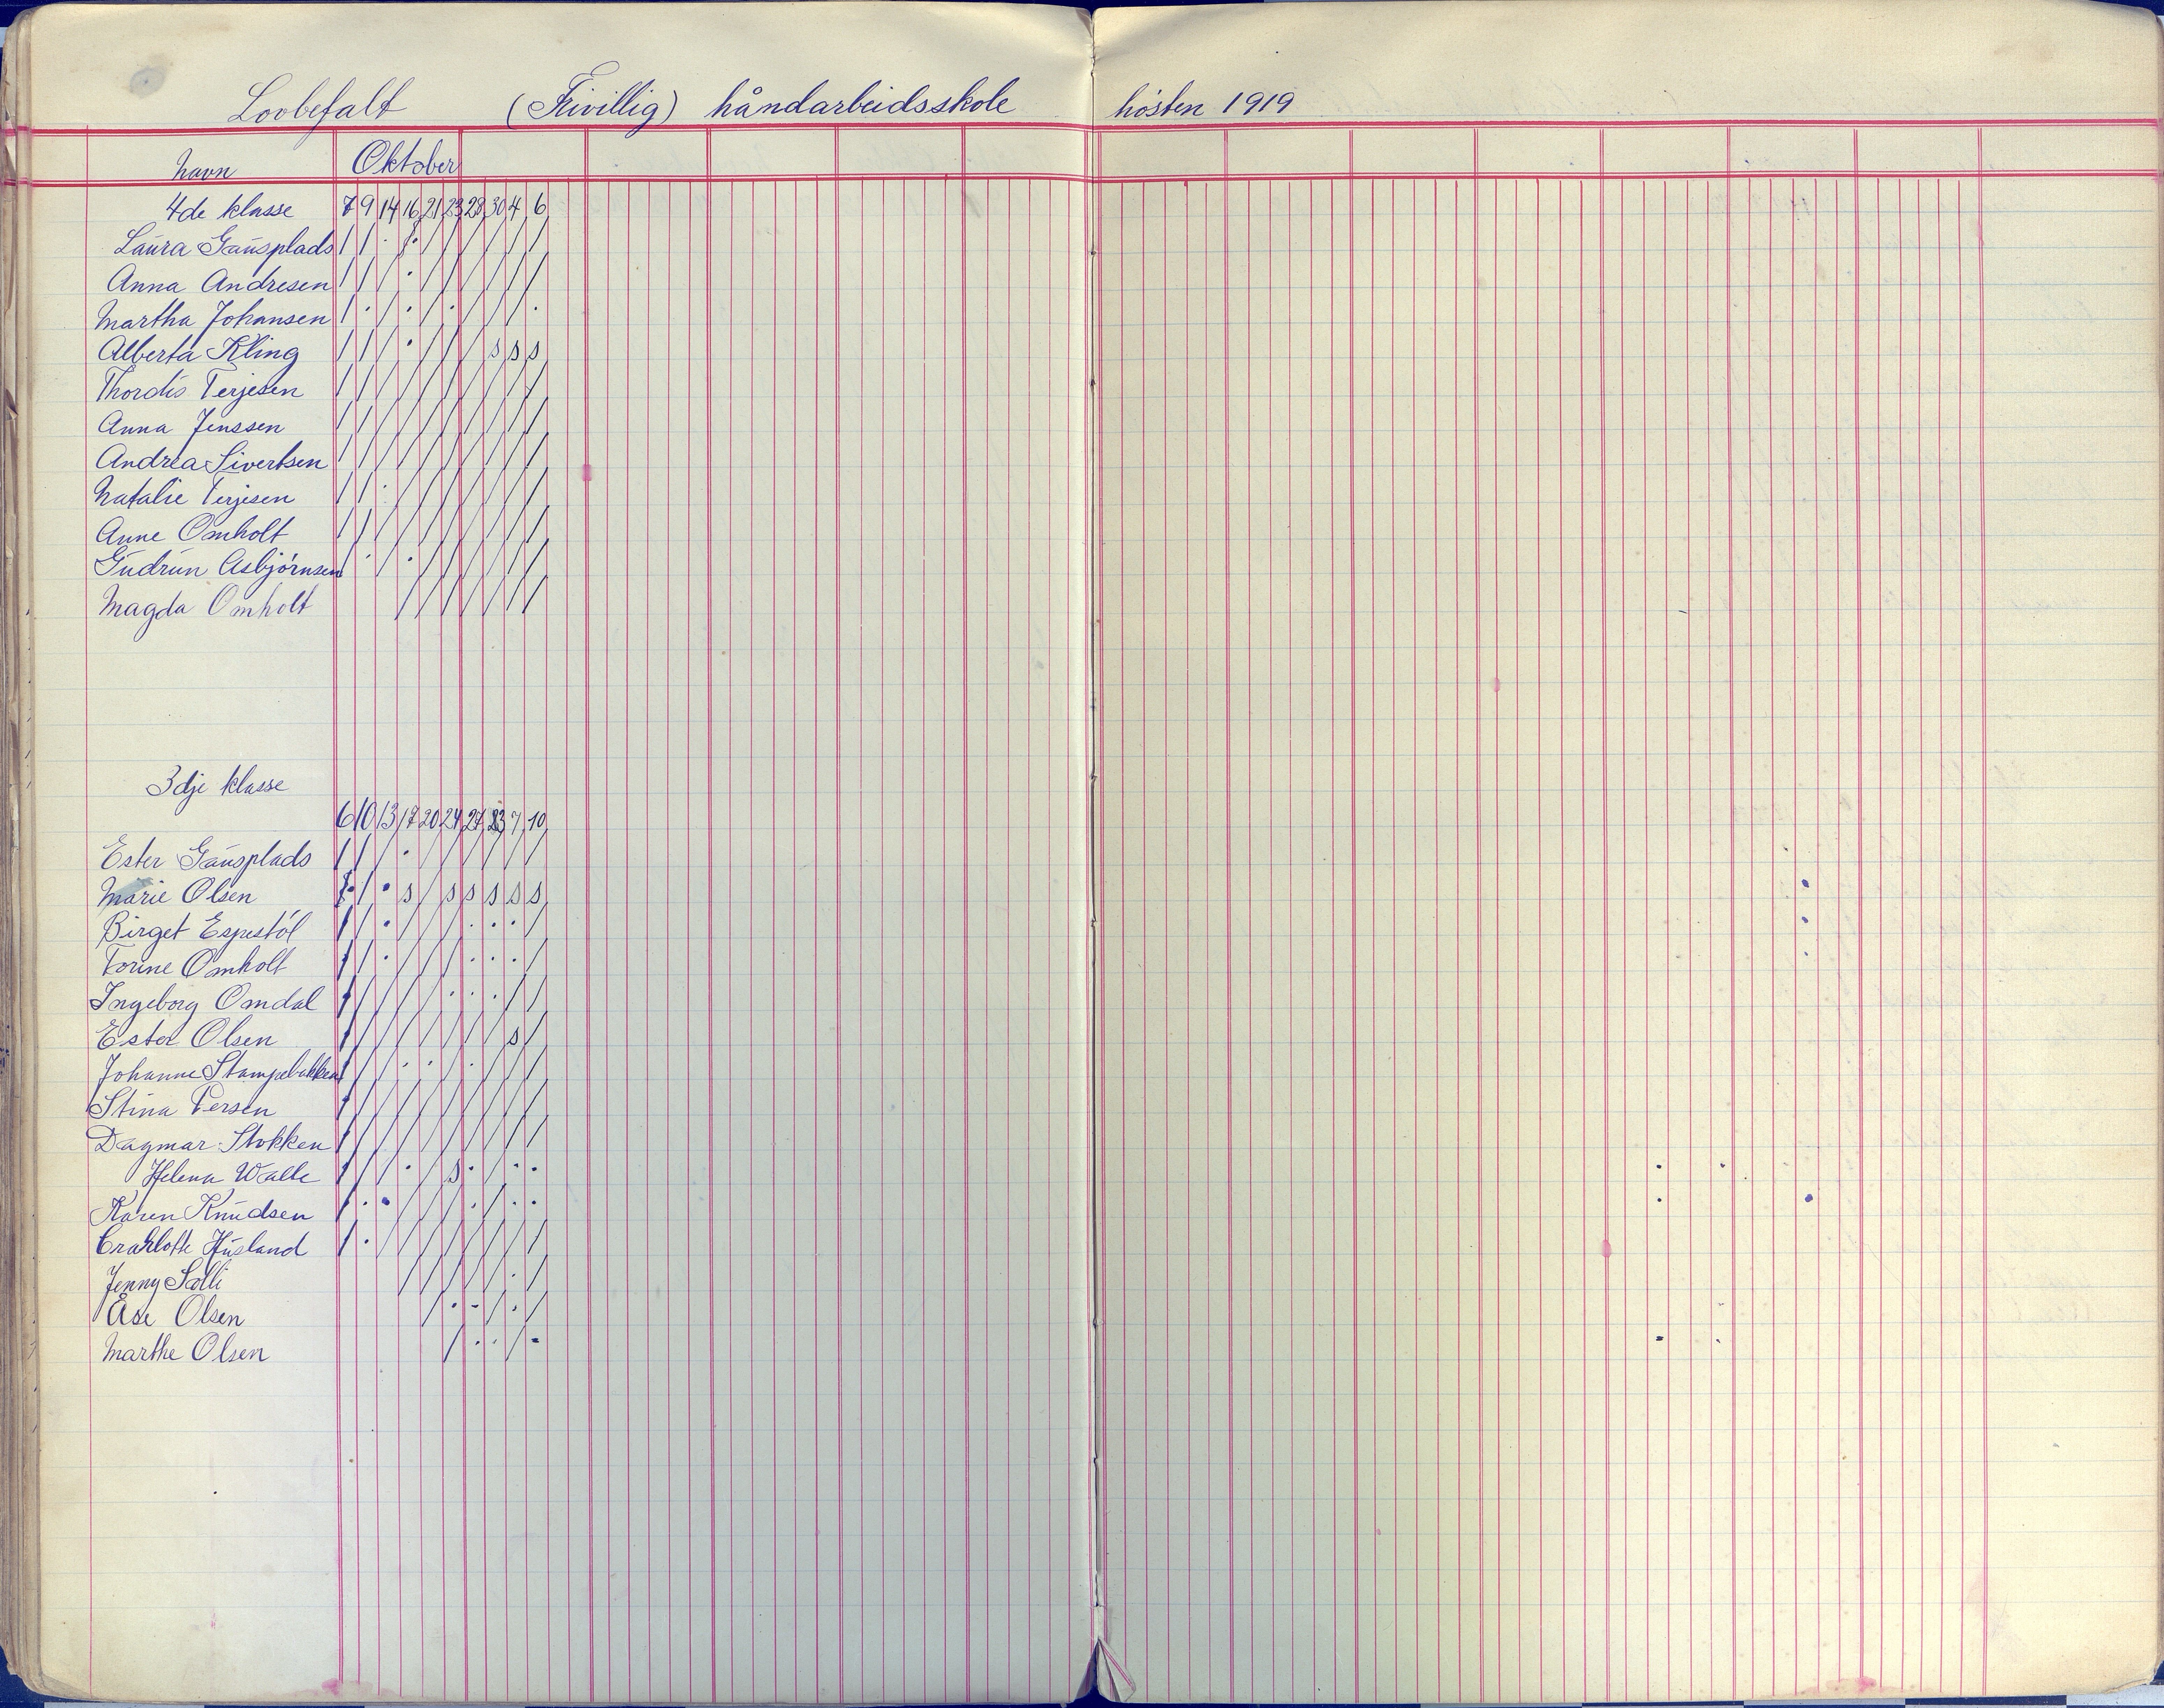 Lovbefalt (Frivillig) håndarbeidsskole hösten 1919
Navn Oktober
4de klasse 7 9 14 16 21 23 28 30 4 6
Laura Gausplads / / · · / / / / / /
Anna Andresen / / / · / / / / / /
Martha Johansen / · / · / · / / / ·
Alberta Kling / / / · / / / s s s
Thordis Terjesen / / / / / / / / / /
Anna Jenssen / / / / / / / / / /
Andrea Sivertsen / / / / / / / / / /
Natalie Terjesen / / · / / / / / / /
Anne Omholt / / / / / / / / / /
Gudrun Asbjörnsen / · / · / / / / / /
Magda Omholt / / / / / / /
3dje klasse
6 10 13 17 20 24 27 7 10
Ester Gausplads / / / · / / / / / /
Marie Olsen · / · s / s s s s s
Birget Espestöl / / · / / / · · · /
Torine Omholt / / · / / / · · · /
Ingeborg Omdal / / / / / · · · / /
Ester Olsen / / / / / / / / s /
Johanne Stampebakken / / / · · / · / / /
Stina Persen / / / / / / / / / /
Dagmar Stokken / / / / / / / / / /
Helena Walle / / / · / s · / · ·
Karen Knudsen / · · / / / · / · ·
Crahlotte Husland / · / / / / / / / /
Jenny Salli / / / / / · /
Åse Olsen / · - / · /
Marthe Olsen / · · / -